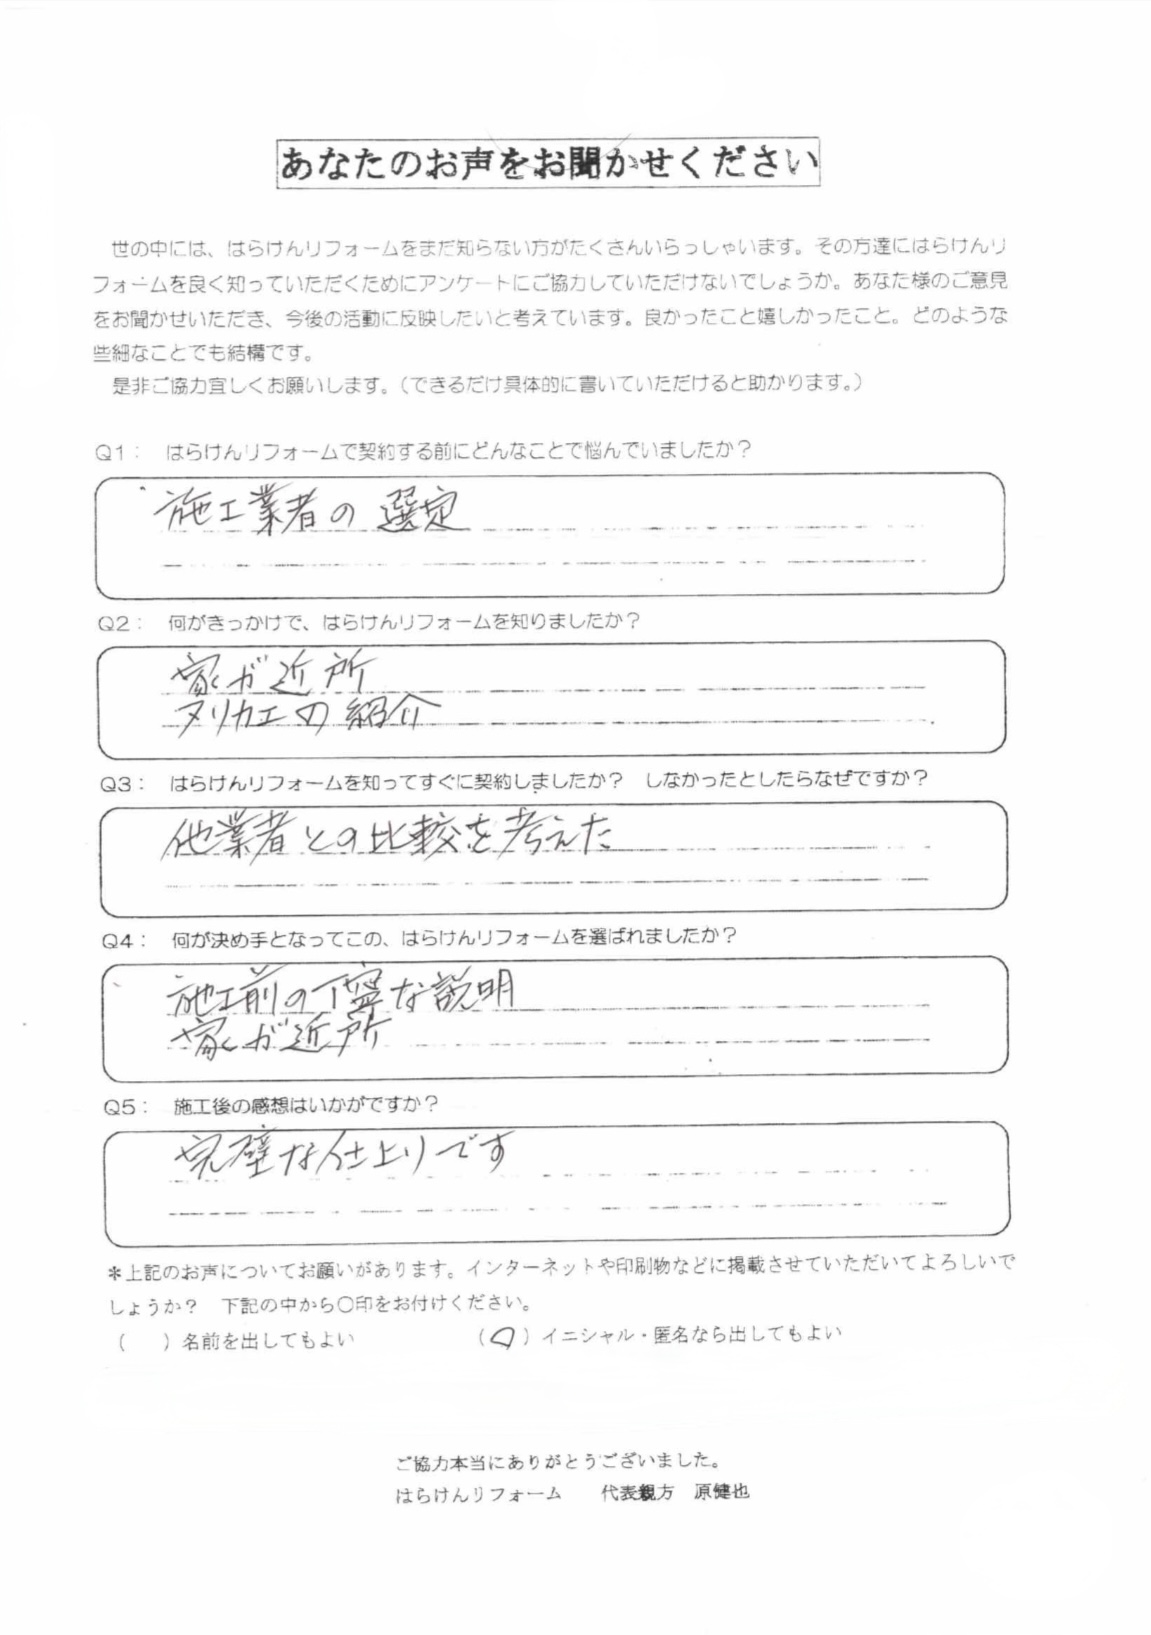 あなたのお声をお聞かせください
世の中には、はらけんリフォームをまだ知らない方がたくさんいらっしゃいます。その方達にはらけんリ
フォームを良く知っていただくためにアンケートにご協力していただけないでしょうか。あなた様のご意見
をお聞かせいただき、今後の活動に反映したいと考えています。良かったこと嬉しかったこと。どのような
些細なことでも結構です。
是非ご協力宜しくお願いします。（できるだけ具体的に書いていただけると助かります。）
Q1： はらけんリフォームで契約する前にどんなことで悩んでいましたか？
施工業者の選定
Q2： 何がきっかけで、はらけんリフォームを知りましたか？
家が近所
ヌリカエの紹介
Q3： はらけんリフォームを知ってすぐに契約しましたか？ しなかったとしたらなぜですか？
他業者との比較を考えた
Q4： 何が決め手となってこの、はらけんリフォームを選ばれましたか？
施工前の丁寧な説明
家が近所
Q5： 施工後の感想はいかがですか？
完璧な仕上りです
＊上記のお声についてお願いがあります。インターネットや印刷物などに掲載させていただいてよろしいで
しょうか？ 下記の中から〇印をお付けください。
（ ）名前を出してもよい （〇）イニシャル・匿名なら出してもよい
ご協力本当にありがとうございました。
はらけんリフォーム 代表親方 原健也